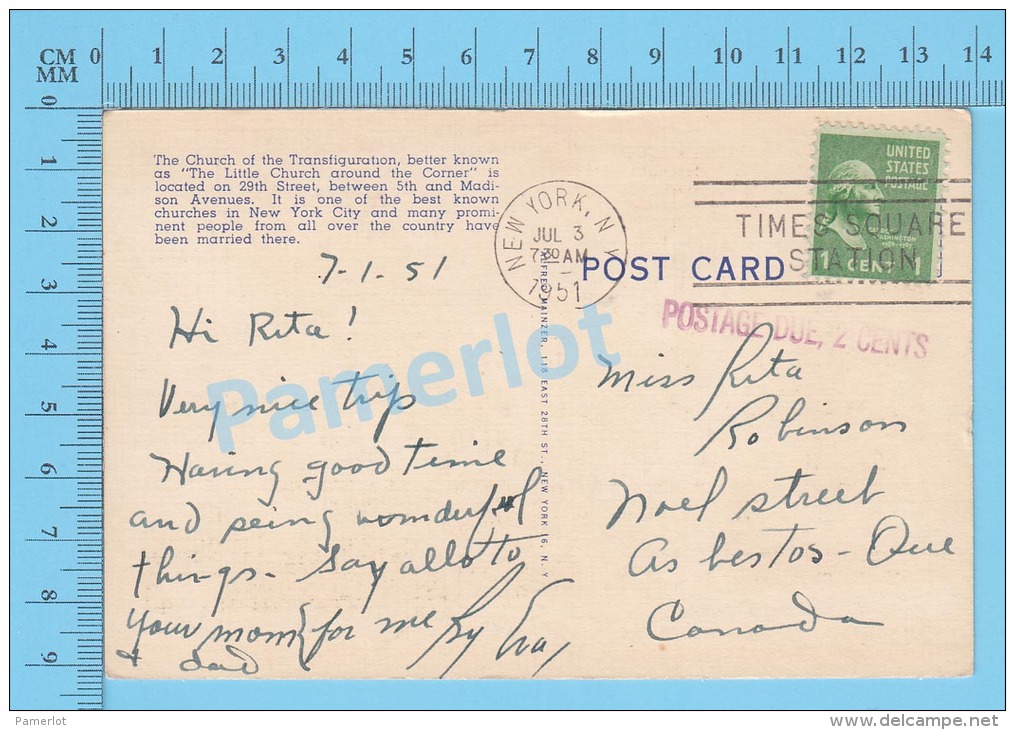 CM 0 1 2 3 4 5 6 7 8 9 10 11 12 13 14
MM
0 1 2 3 4 5 6 7 8 9
The Church of the Transfiguration, better known
as "The Little Church around the Corner" is
located on 29th Street, between 5th and Madi-
son Avenues. It is one of the best known
churches in New York City and many promi-
nent people from all over the country have
been married there.
NEW YORK, N.Y.
JUL 3
7 30 AM
1951
TIMES SQUARE
STATION
UNITED
STATES
POSTAGE
WASHINGTON
1 CENT 1
POST CARD
POSTAGE DUE, 2 CENTS
ALFRED MAINZER, 118 EAST 28TH ST. NEW YORK 16, N. Y
7-1-51
Hi Rita!
Very nice trip
Having good time
and seing wonderful
things. Say allo to
your mom for me
& dad
Miss Rita
Robinson
Noel street
Asbestos - Que
Canada
Pamerlot
Pamerlot
www.delcampe.net